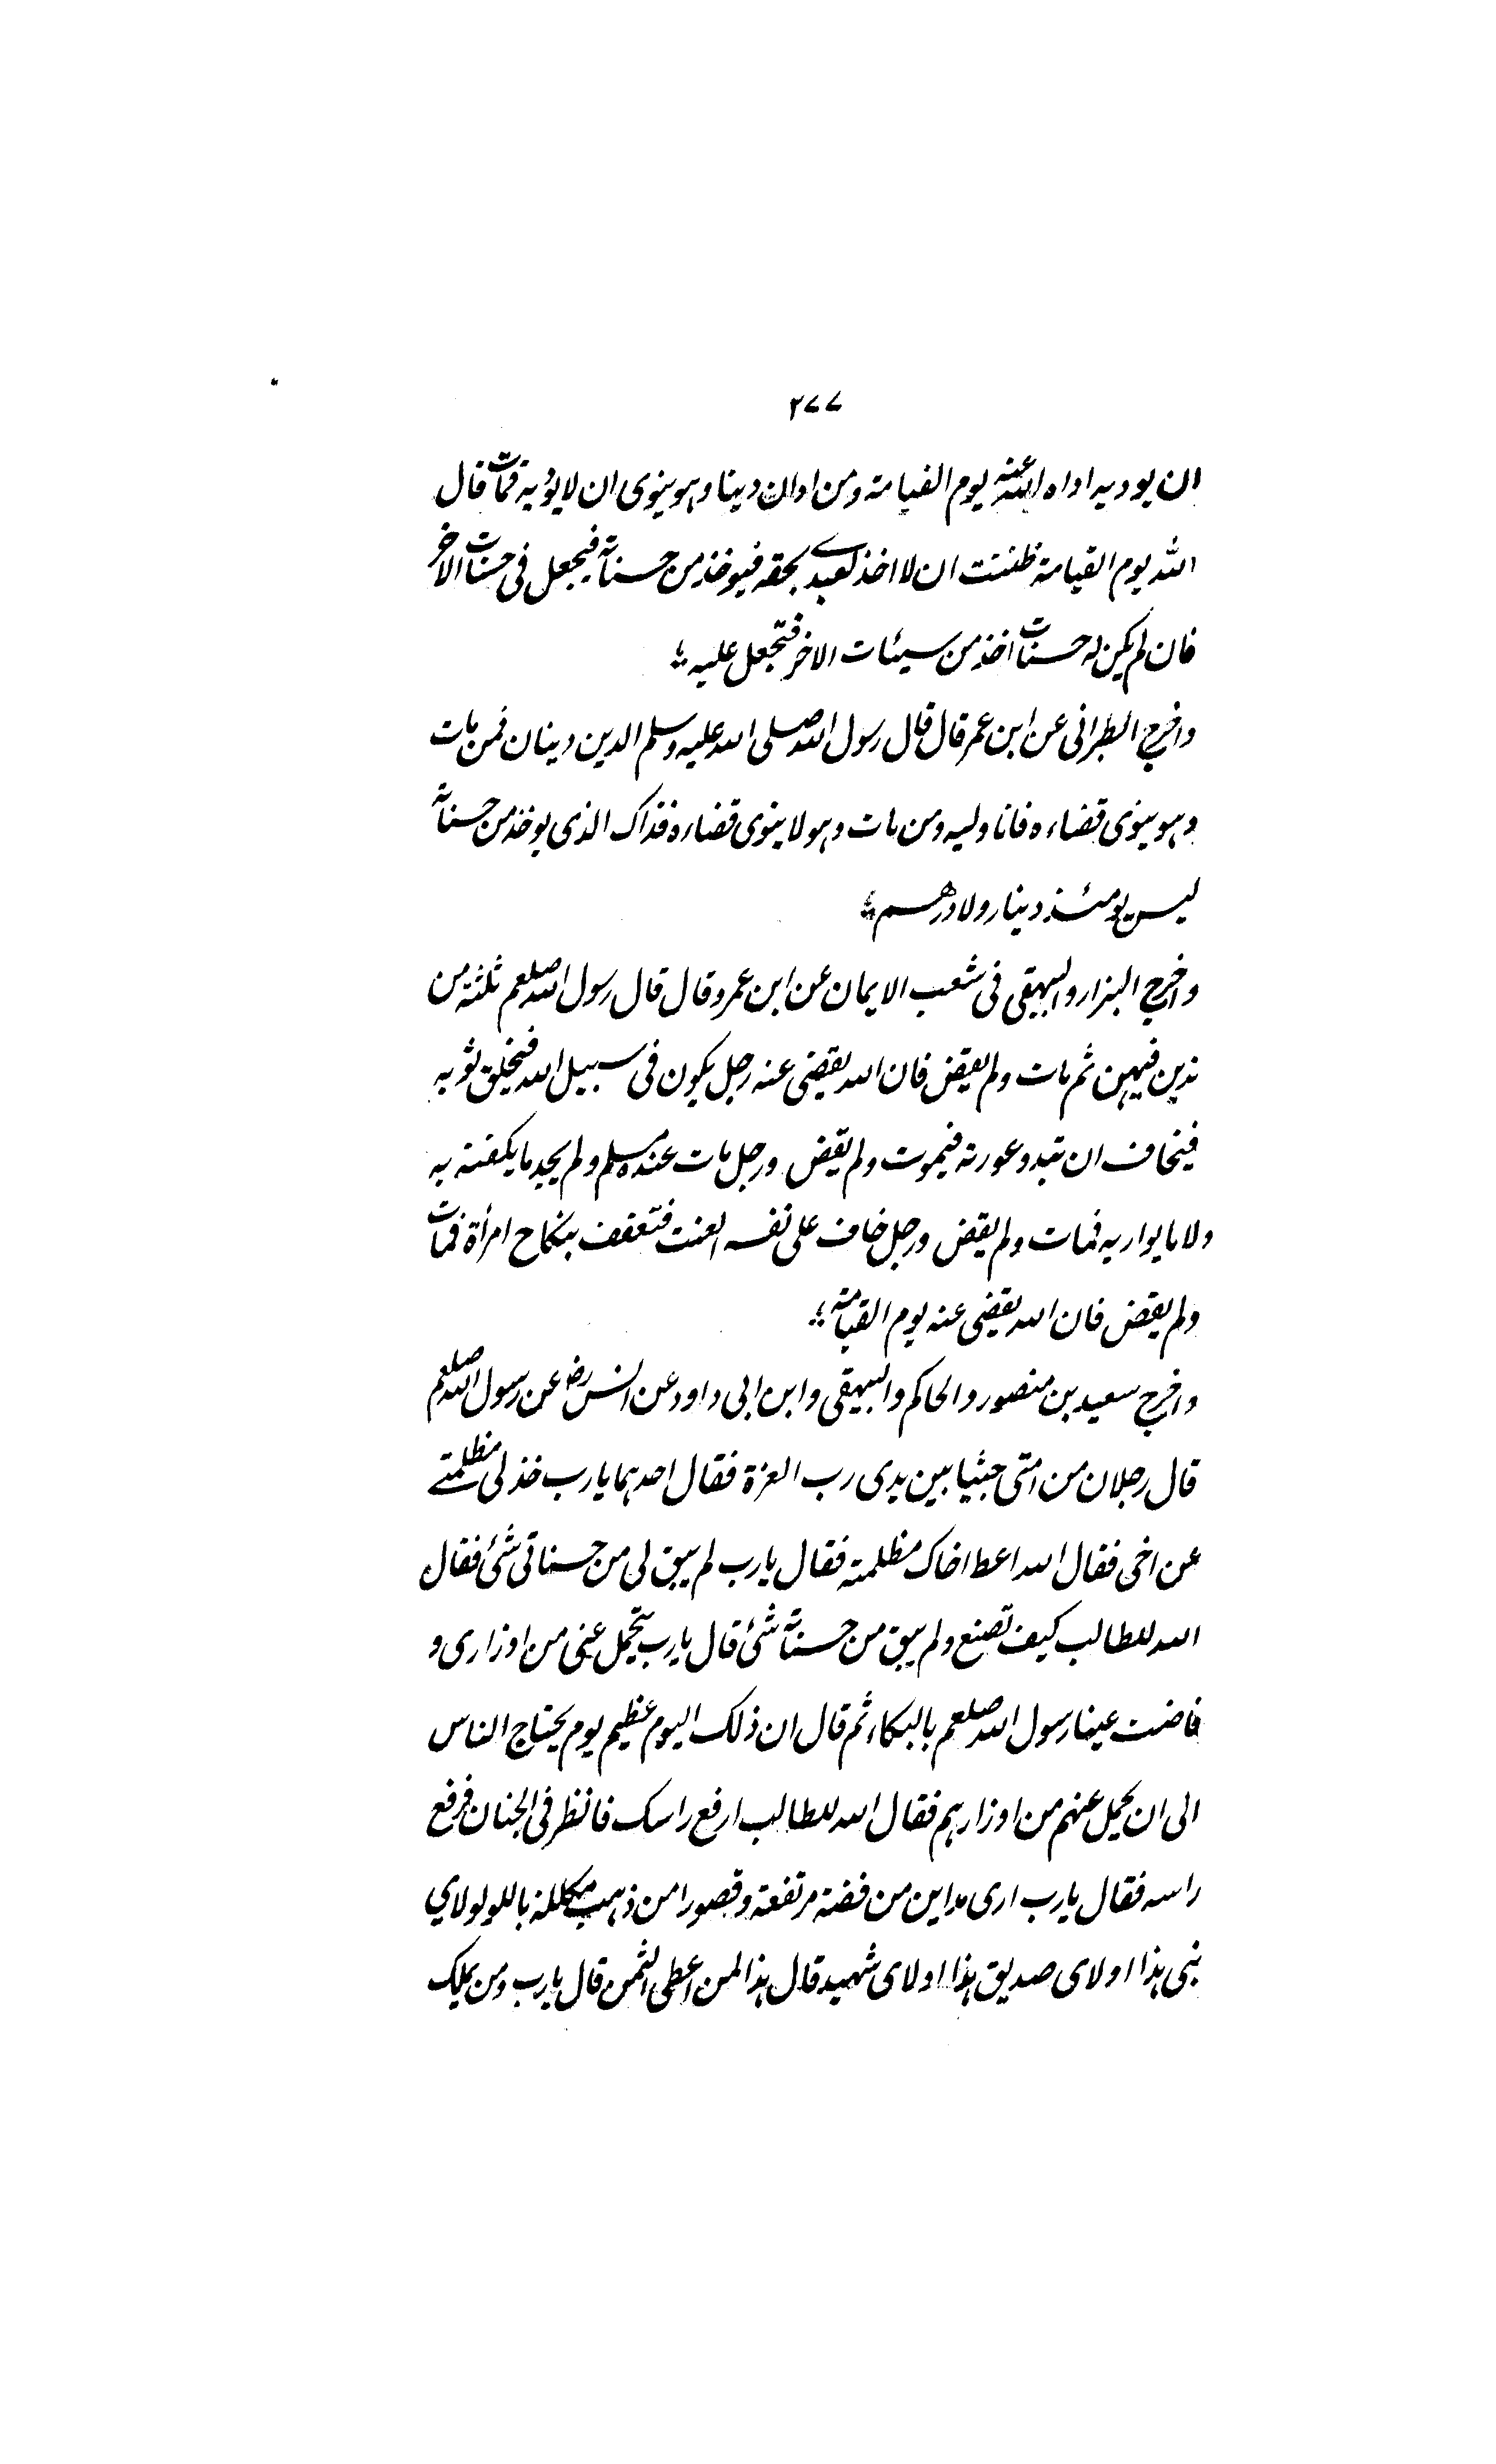 ۲۷۷
ان یودیه اداه الله عنه یوم القیامة ومن ادان دینا وہو ینوی ان لا یؤدیه فمات قال
الله یوم القیامة ظننت ان لا اخذ لعبدے بحقه فیوخذ من حسناته فیجعل فی حسنات الاخر
فان لم یکن له حسنات اخذ من سیئات الاخر فتجعل علیه ؛
واخرج الطبرانی عن ابن عمر قال قال رسول الله صلی الله علیه وسلم الدین دینان فمن مات
وہو ینوی قضاءه فانا ولیه ومن مات وہو لا ینوی قضاءه فذاک الذی یوخذ من حسناته
لیس یومئذ دینار ولا درهم ؛
واخرج البزار والبیهقی فی شعب الایمان عن ابن عمرو قال قال رسول الله صلعم ثلثة من
تدین فیهن ثم مات ولم یقض فان الله یقضی عنه رجل یکون فی سبیل الله فیخلق ثوبه
فیخاف ان تبدو عورته فیموت ولم یقض ورجل مات عنده مسلم ولم یجد ما یکفنه به
ولا ما یواریه فمات ولم یقض ورجل خاف علی نفسه العنت فتعفف بنکاح امرأة فمات
ولم یقض فان الله یقضی عنه یوم القیامة ؛
واخرج سعید بن منصور والحاکم والبیهقی وابن ابی داود عن انس رض عن رسول الله صلعم
قال رجلان من امتی جثیا بین یدی رب العزة فقال احدہما یا رب خذ لی مظلمتے
عن اخی فقال الله اعط اخاک مظلمته فقال یا رب لم یبق لی من حسناتی شئ فقال
الله للطالب کیف تصنع ولم یبق من حسناته شئ قال یا رب یتحمل عنی من اوزاری و
فاضت عینا رسول الله صلعم بالبکاء ثم قال ان ذلک الیوم عظیم یوم یحتاج الناس
الی ان یحمل عنهم من اوزارہم فقال الله للطالب ارفع راسک فانظر فی الجنان فرفع
راسه فقال یا رب اری مداین من فضة مرتفعة وقصورا من ذہب مکللة باللولو لاي
نبی ہذا او لای صدیق ہذا او لای شهید قال ہذا لمن اعطی الثمن قال یا رب ومن یملک